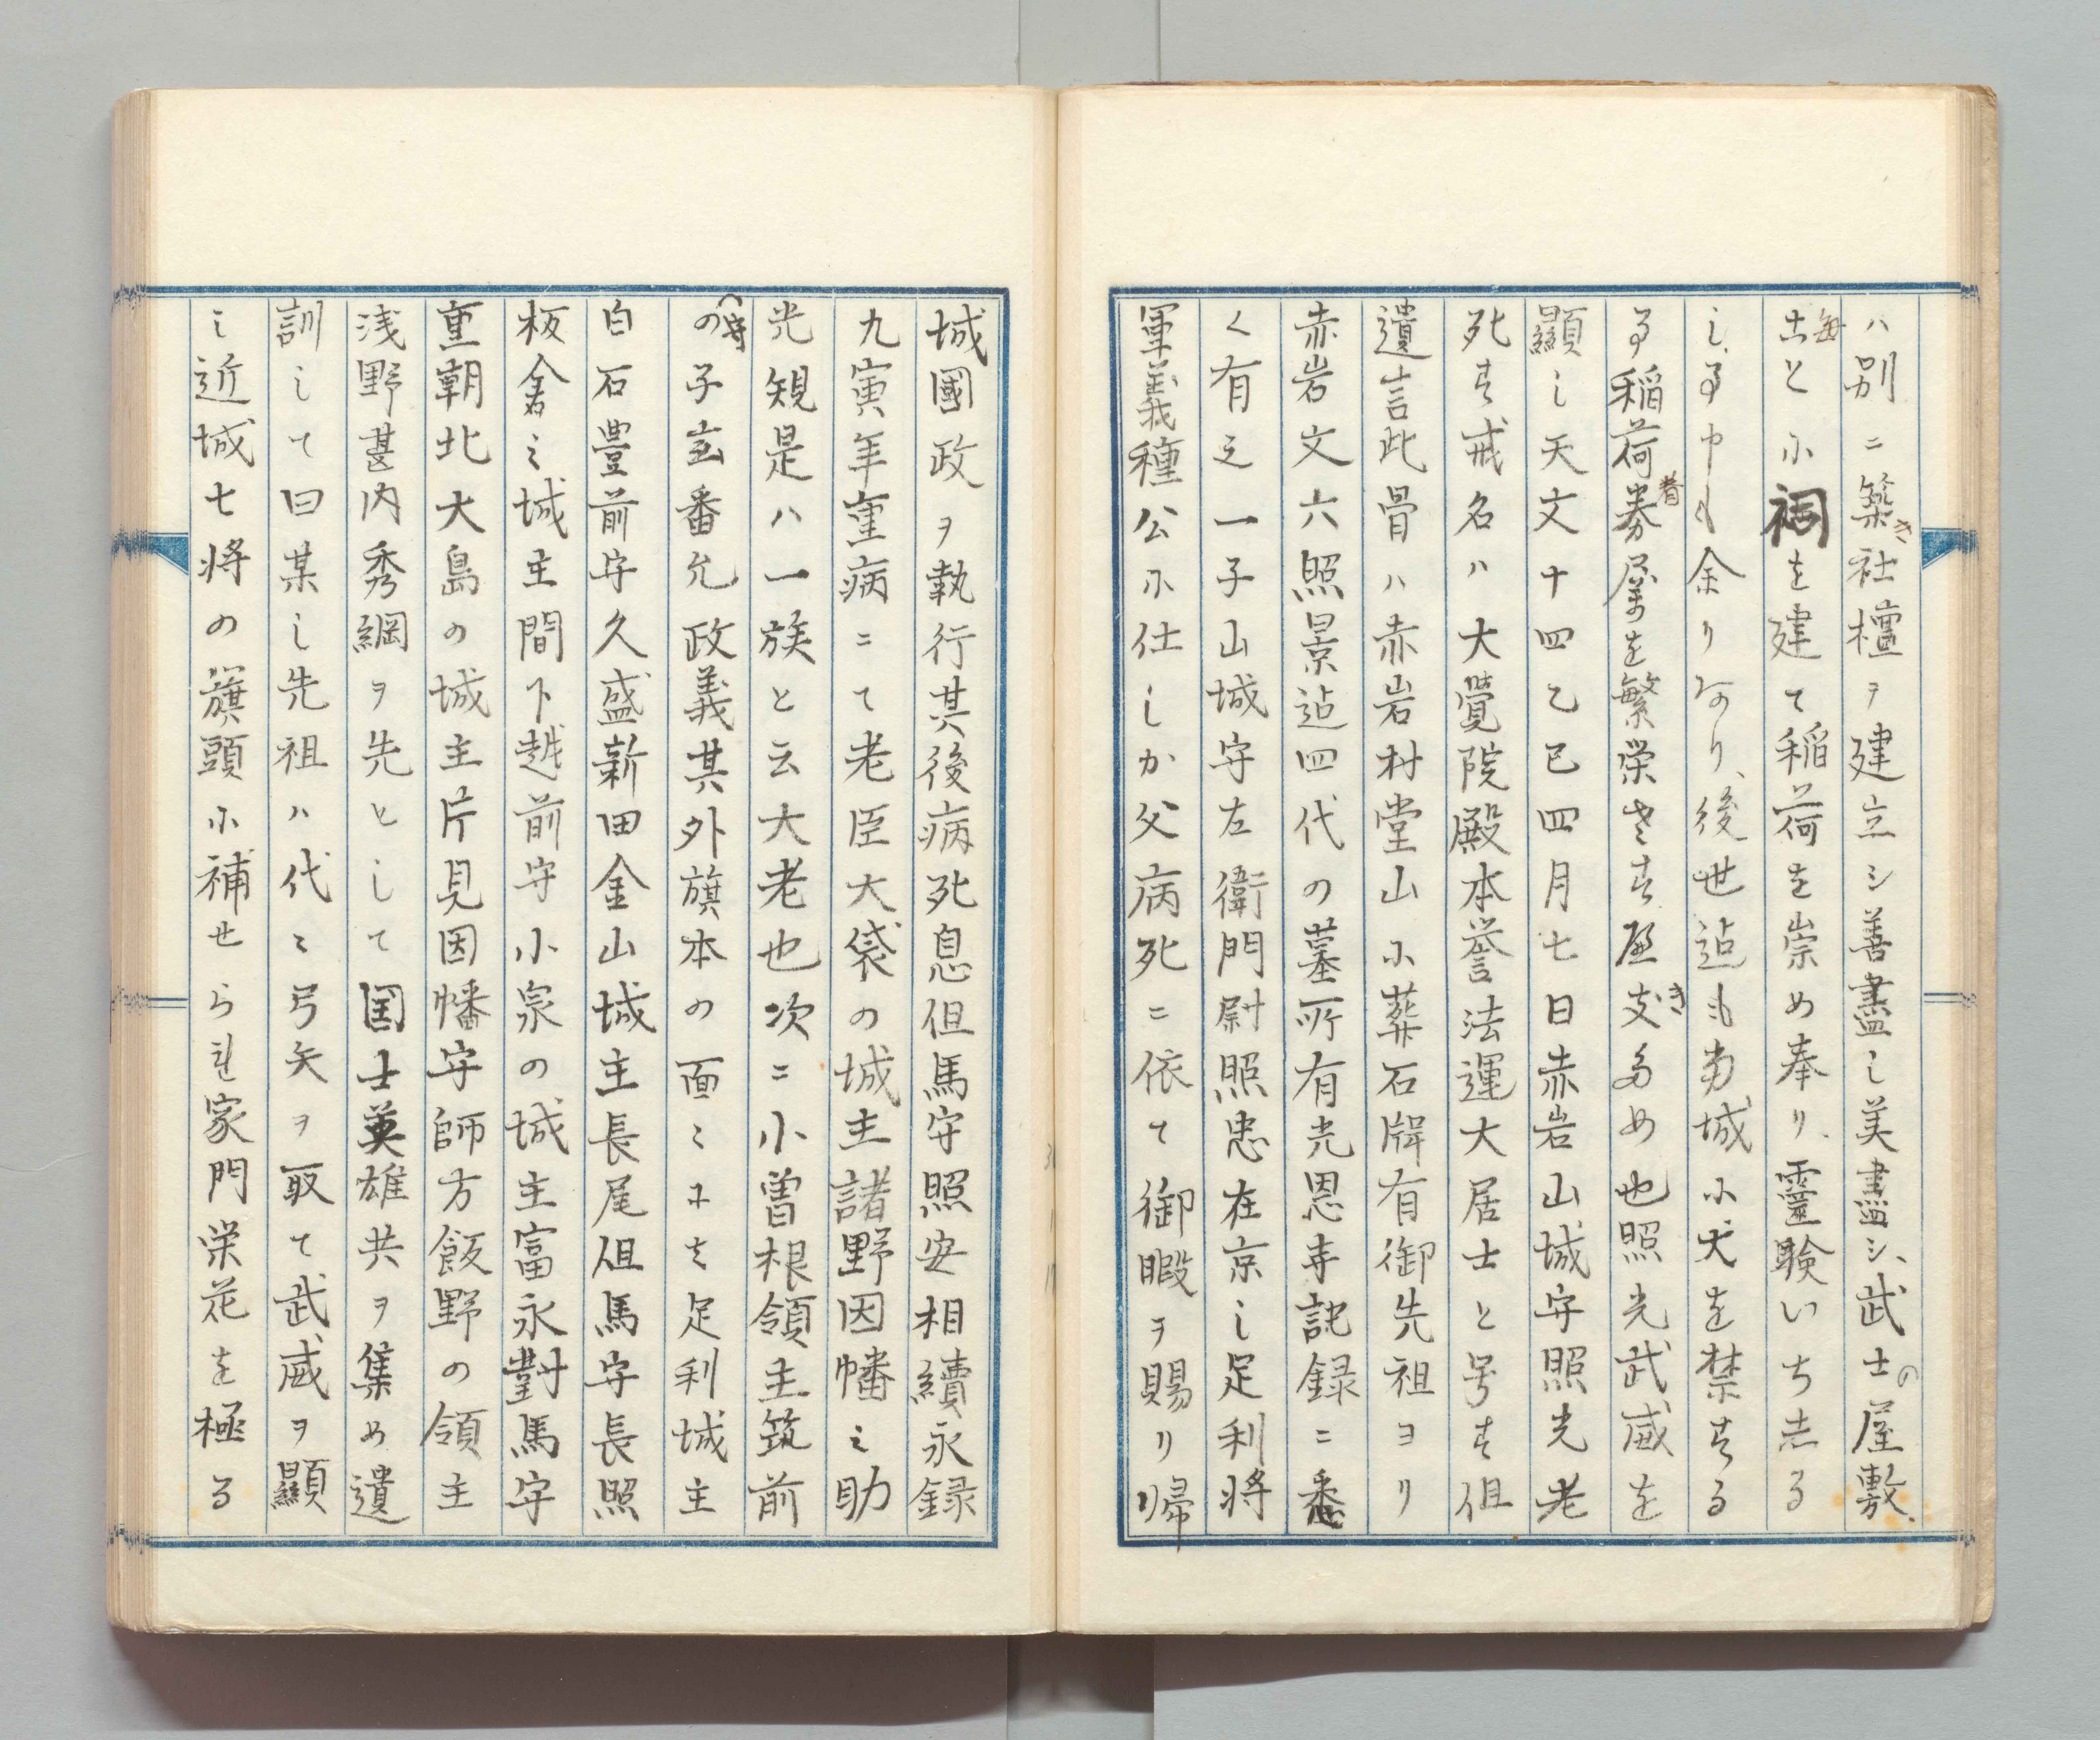 ハ別ニ築き社檀ヲ建立シ善盡し美盡シ、武士の屋敷、
毎
古と小祠を建て稲荷を崇め奉り、霊験いち志る
し、る中も余りあり、後世迠も当城小犬を禁する
る稲荷眷属を繁栄せす
め也照光武威を
顯し天文十四乙巳四月七日赤岩山城守照光老
死す戒名ハ大覺院殿本誉法運大居士と号す但
遺言此骨ハ赤岩村堂山小葬石牌有御先祖ヨリ
赤岩文六照景迠四代の墓所有光恩寺記録ニ悉
く有之一子山城守左衛門尉照忠在京し足利将
軍義種公小仕しか父病死ニ依て御暇ヲ賜リ帰
城國政ヲ執行其後病死息但馬守照安相續永録
九寅年重病ニて老臣大袋の城主諸野因幡之助
光規是ハ一族と云大老也次ニ小曽根領主筑前
の守
子玄番允政義其外旗本の面ミ
足利城主
白石豊前守久盛新田金山城主長尾但馬守長照
板倉之城主間下越前守小泉の城主富永對馬守
重朝北大島の城主片見因幡守師方飯野の領主
浅野甚内秀綱ヲ先として国士英雄共ヲ集め遺
訓して曰某し先祖ハ代ミ弓矢ヲ取て武威ヲ顯
し近城七将の簱頭小補せられ家門栄花を極る